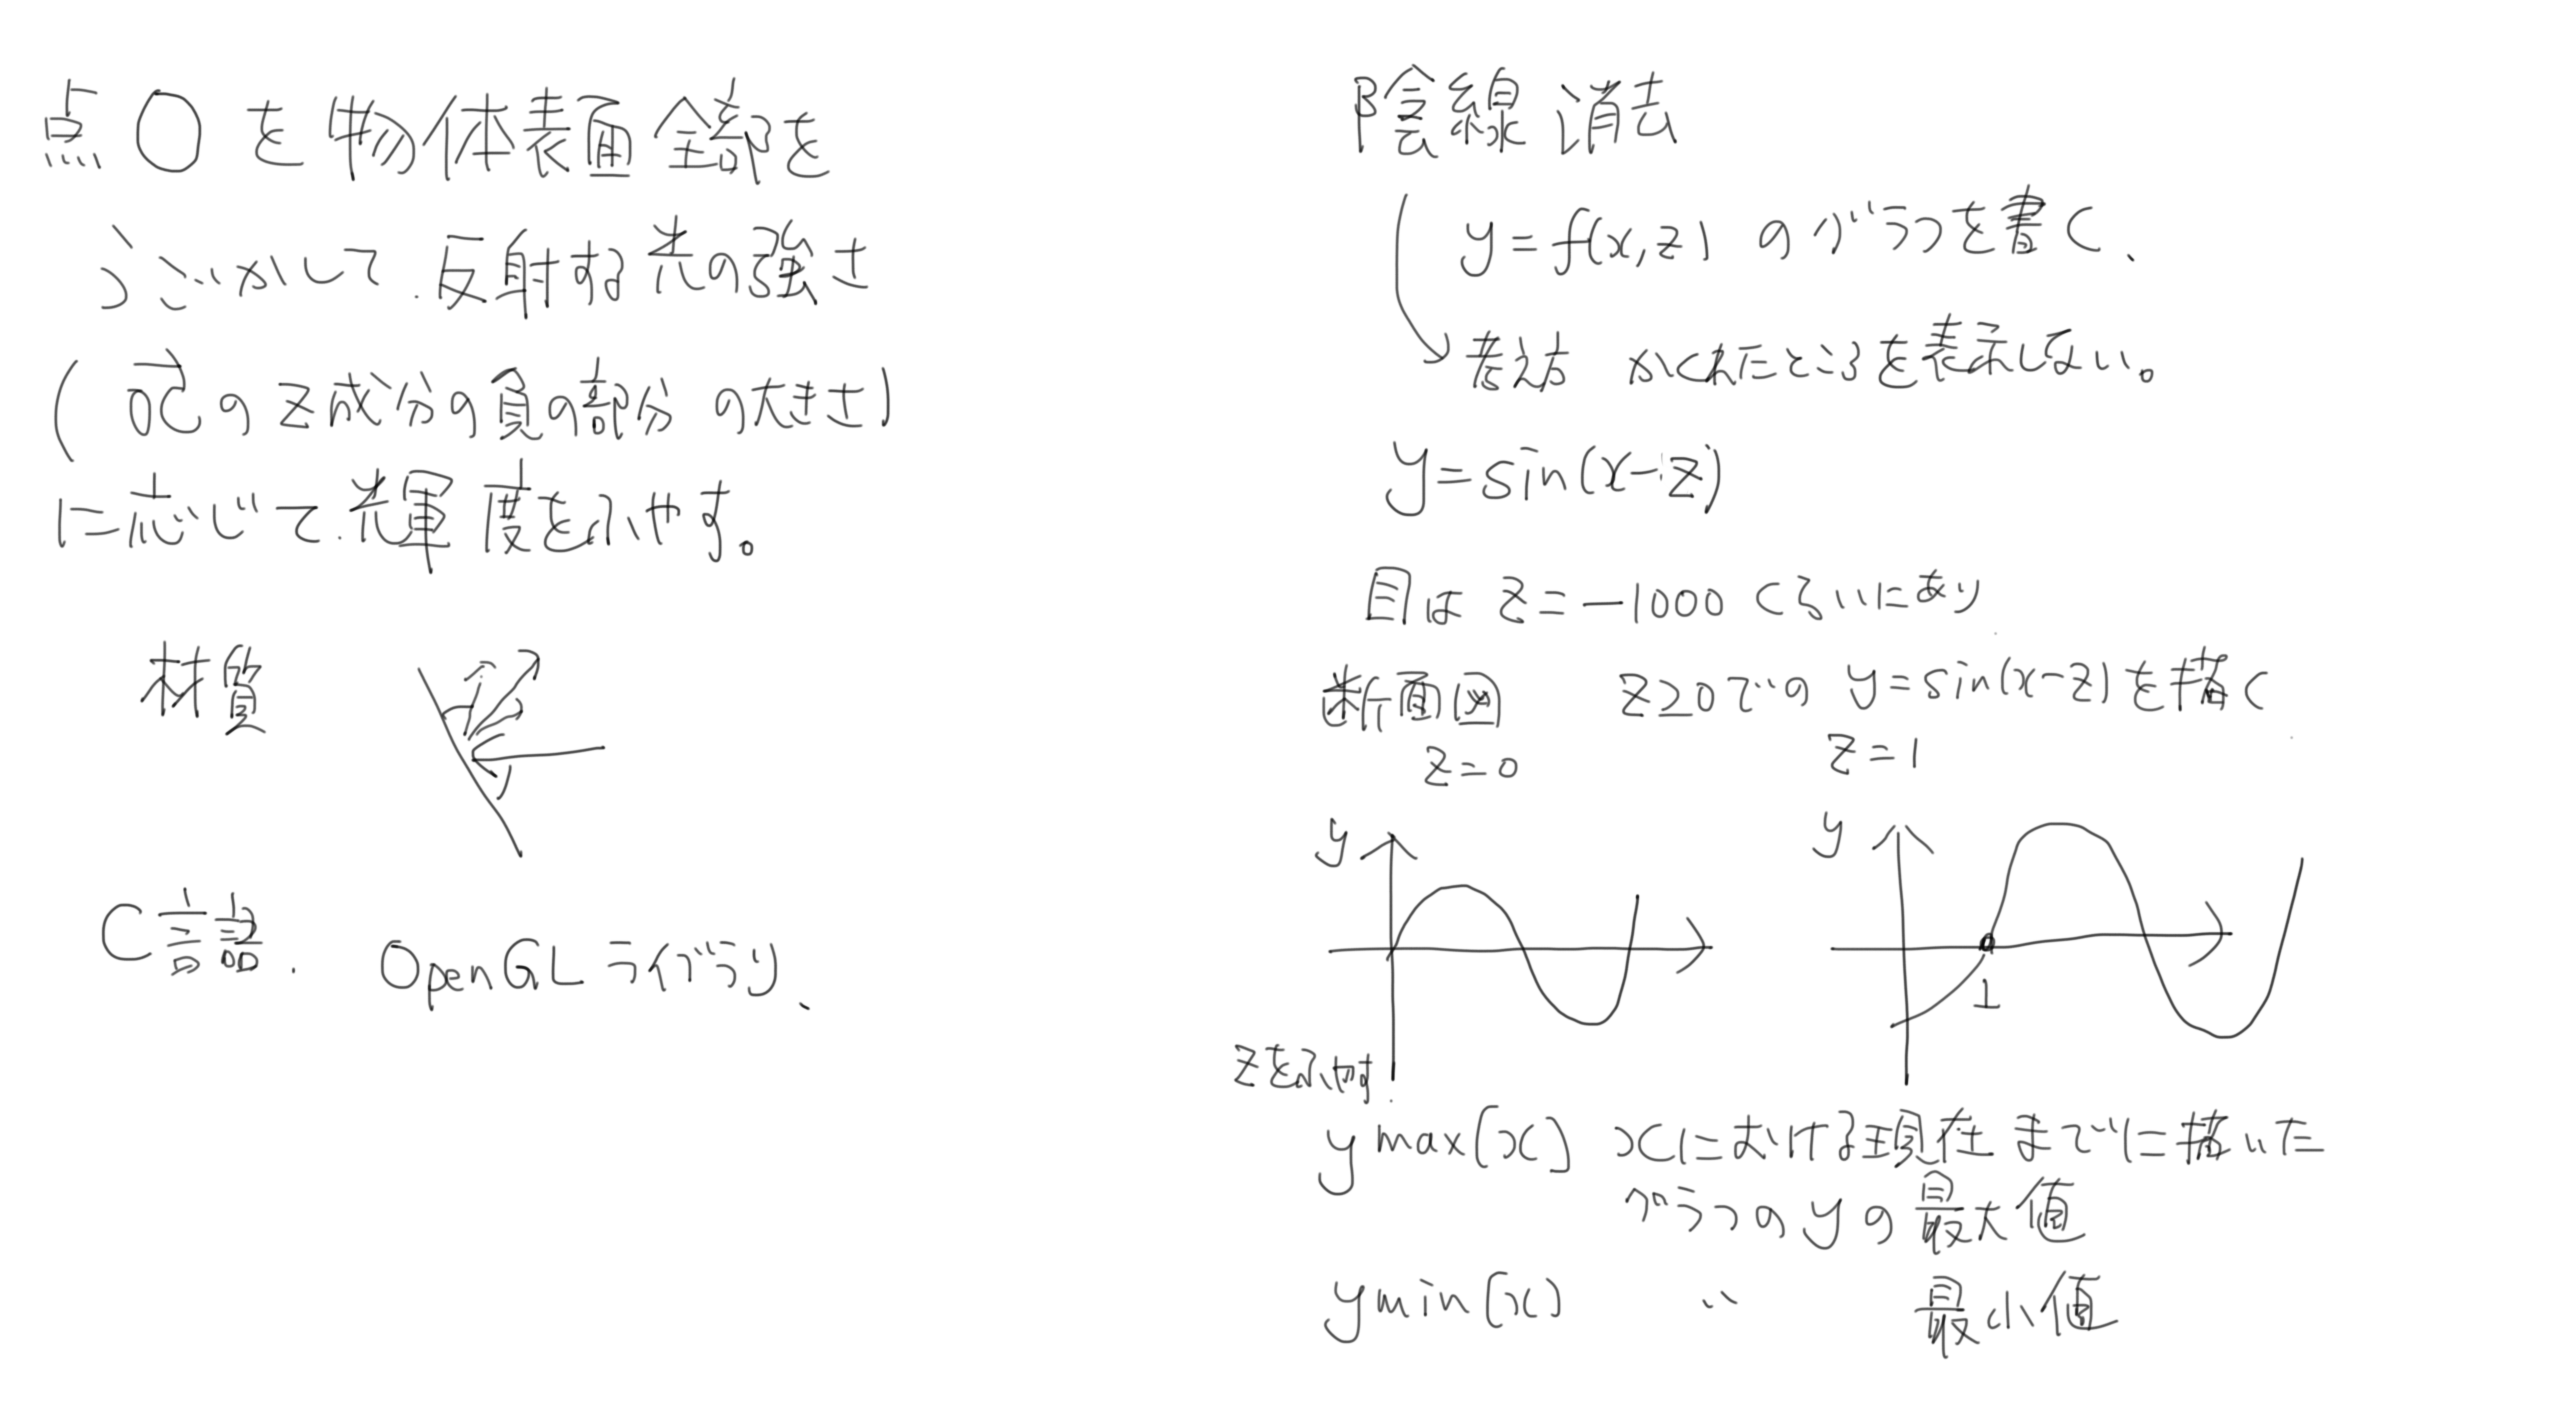 点Oを物体表面全部を
うごかして.反射する光の強さ
(OCのz成分の負の部分の大きさ)
に応じて.光輝度をふやす。
材質
C言語. OpenGLライブラリ、
陰線消去
y=f(x,z)のグラフを書く、
考え方 かくれたところを表示しない。
y=sin(x-z)
目は z=-1000くらいにあり
断面図 z≥0での y=sin(x-z)を描く
z=0 z=1
y y
1
zをふやす.
ymax[x] xにおける現在までに描いた
グラフのyの最大値
ymin[x] 〃 最小値